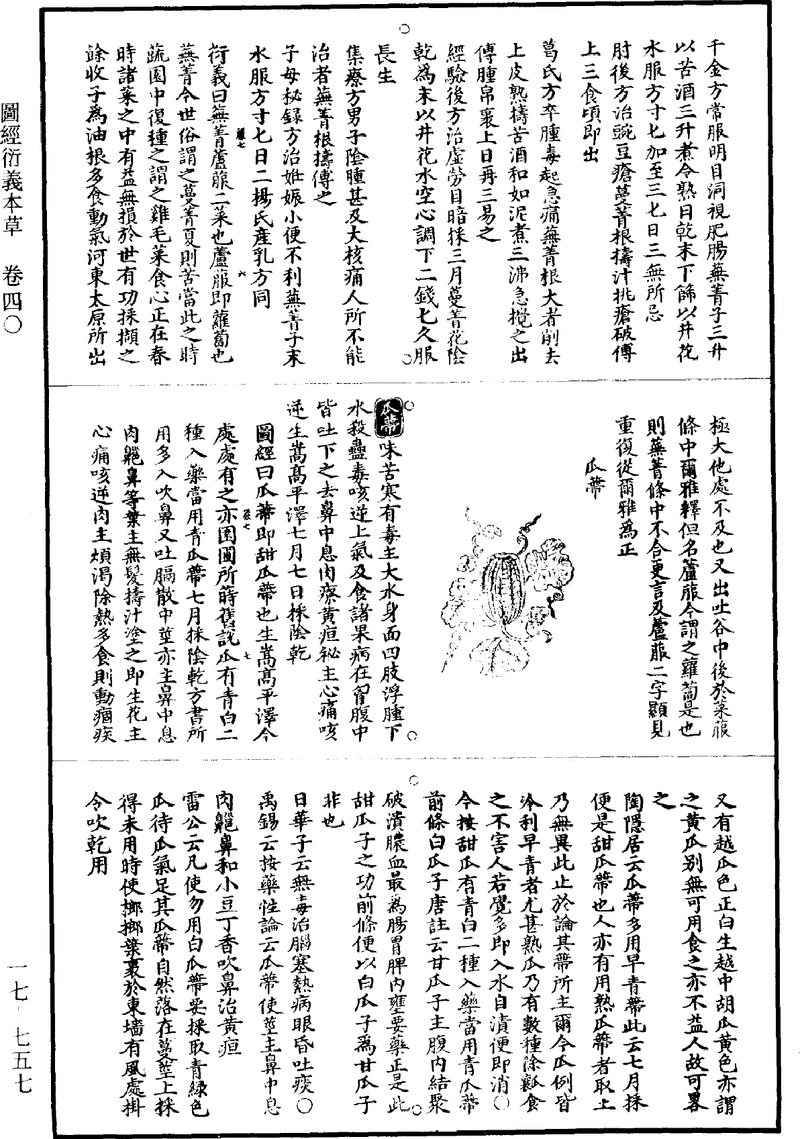 圖經衍義本草　卷四〇
千金方常服明目洞視肥腸蕪菁子三升
以苦酒三升煮令熟日乾末下篩以井花
水服方寸匕加至三匕日三無所忌
肘後方治豌豆瘡蔓菁根擣汁挑瘡破傅
上三食頃即出
葛氏方卒腫毒起急痛蕪菁根大者削去
上皮熟擣苦酒和如泥煮三沸急攪之出
傅腫帛裹上日再三易之
經驗後方治虛勞目暗採三月蔓菁花陰
乾為末以井花水空心調下二錢匕久服
長生
集療方男子陰腫甚及大核痛人所不能
治者蕪菁根擣傅之
子母秘録方治妊娠小便不利蕪菁子末
水服方寸匕日二楊氏産乳方同
衍義曰蕪菁蘆菔二菜也蘆菔即蘿蔔也
蕪菁今世俗謂之蔓菁夏則苦當此之時
蔬園中復種之謂之雞毛菜食心正在春
時諸菜之中有益無損於世有功採擷之
餘收子為油根多食動氣河東太原所出
極大他處不及也又出吐谷中後於菜菔
條中爾雅釋但名蘆菔今謂之蘿蔔是也
則蕪菁條中不合更言及蘆菔二字顯見
重復從爾雅為正
瓜蒂
瓜蒂 味苦寒有毒主大水身面四肢浮腫下
水殺蠱毒咳逆上氣及食諸果病在胷腹中
皆吐下之去鼻中息肉療黃疸祕主心痛咳
逆生嵩高平澤七月七日採陰乾
圖經曰瓜蒂即甜瓜蒂也生嵩高平澤今
處處有之亦園圃所時舊說瓜有青白二
種入藥當用青瓜蒂七月採陰乾方書所
用多入吹鼻又吐膈散中莖亦主鼻中息
肉齆鼻等葉主無髮擣汁塗之即生花主
心痛咳逆肉主煩渴除熱多食則動痼疾
又有越瓜色正白生越中胡瓜黃色亦謂
之黃瓜別無可用食之亦不益人故可畧
之
陶隱居云瓜蒂多用早青蒂此云七月採
便是甜瓜蒂也人亦有用熟瓜蒂者取上
乃無異此止於論其蒂所主爾今瓜例皆
冷利早青者尤甚熟瓜乃有數種除瓤食
之不害人若覺多即入水自漬便即消〇
今按甜瓜有青白二種入藥當用青瓜蒂
前條白瓜子唐註云甘瓜子主腹內結聚
破潰膿血最為腸胃脾內壅要藥正是此
甜瓜子之功前條便以白瓜子為甘瓜子
非也
日華子云無毒治腦塞熱病眼昏吐痰〇
禹錫云按藥性論云瓜蒂使莖主鼻中息
肉齆鼻和小豆丁香吹鼻治黃疸
雷公云凡使勿用白瓜蒂要採取青綠色
瓜待瓜氣足其瓜蒂自然落在蔓莖上採
得未用時使榔榔葉裹於東墻有風處掛
令吹乾用
一七－七五七